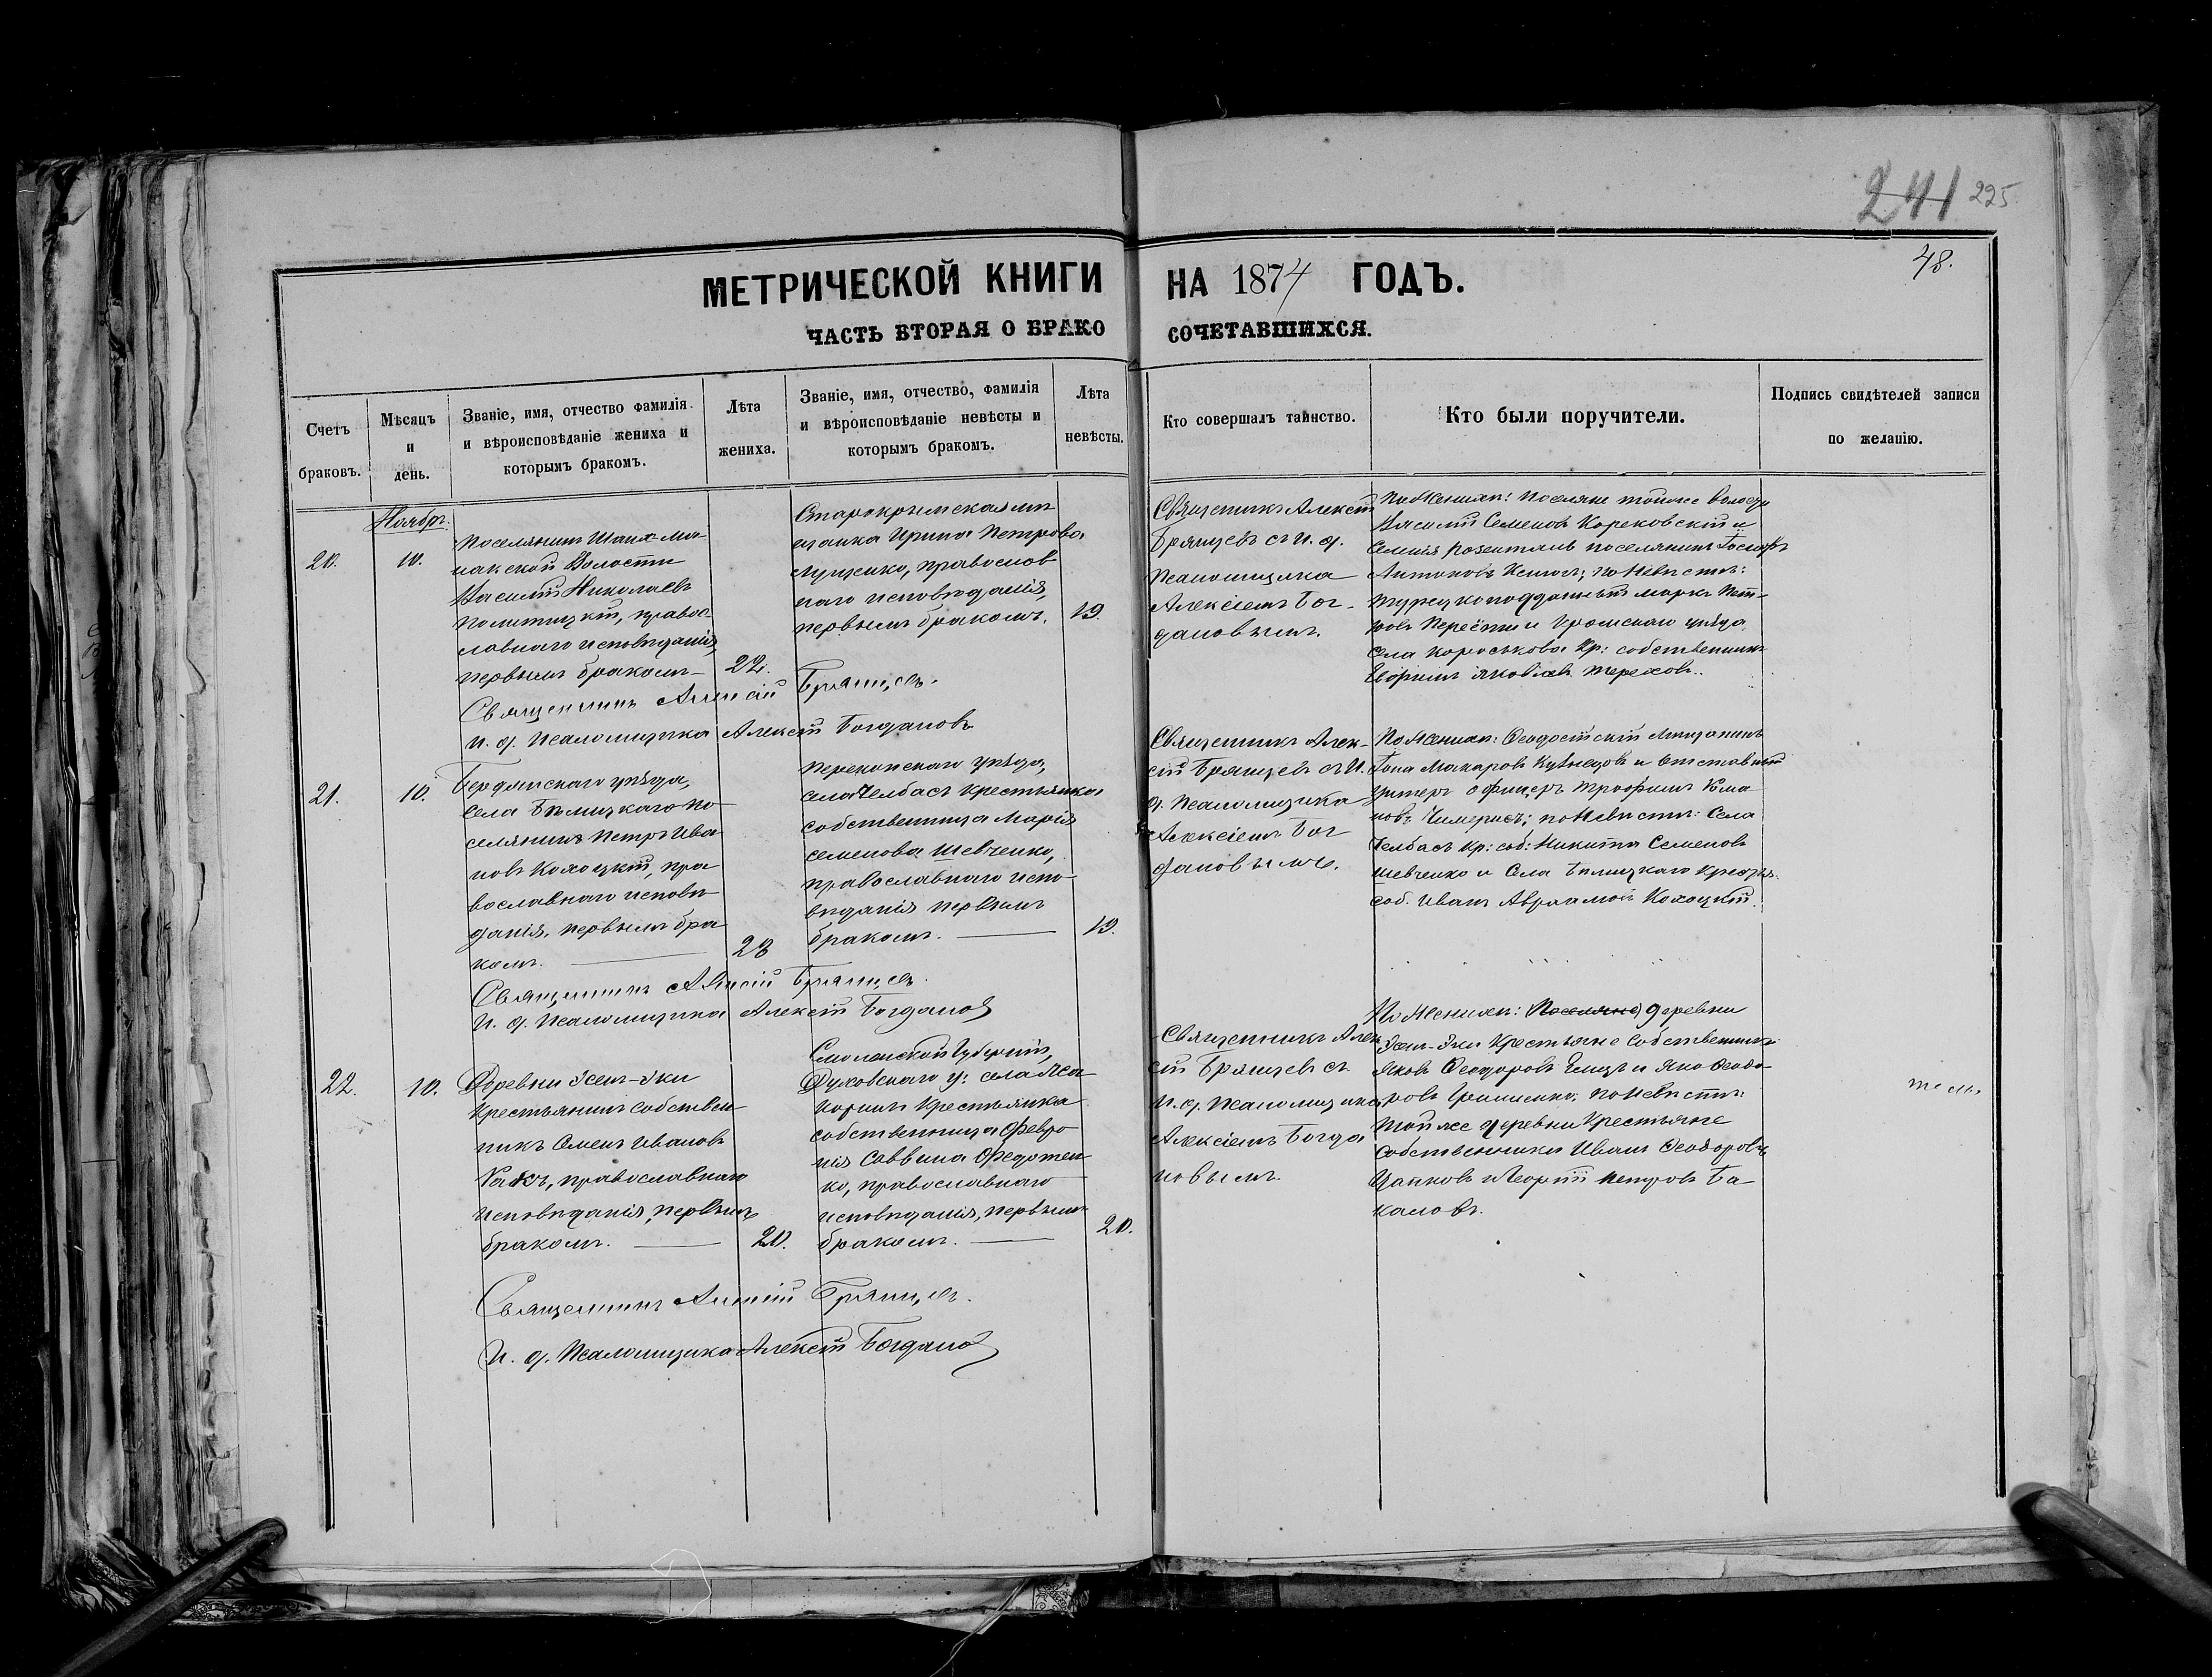 241 225
48.
МЕТРИЧЕСКОЙ КНИГИ НА 1874 ГОДЪ.
ЧАСТЬ ВТОРАЯ О БРАКОСОЧЕТАВШИХСЯ.
Счетъ
браковъ.
Мѣсяцъ
и
день.
Званіе, имя, отчество фамилія
и вѣроисповѣданіе жениха и
которымъ бракомъ.
Лѣта
жениха.
Званіе, имя, отчество, фамилія
и вѣроисповѣданіе невѣсты и
которымъ бракомъ.
Лѣта
невѣсты.
Кто совершалъ таинство.
Кто были поручители.
Подпись свидѣтелей записи
по желанію.
Ноябрь.
20.
10.
Поселянинъ Шаих-Мо-
накской Волости
Василій Николаевъ
Политицкій, правос-
лавнаго исповѣданія,
первымъ бракомъ-
22.
Старокрымская мѣ-
щанка Ирина Петрова
Луценко, православ
наго исповѣданія,
первымъ бракомъ.
19.
Священникъ Алексій
Брянцевъ съ и. д.
Псаломщика
Алексіемъ Бог-
дановымъ.
По Женихѣ: Поселяне тойже волости
Василій Семеновъ Корековскій и
поселянинъ
Антоновъ по Невѣстѣ:
турецкоподданный Марко Пет-
ровъ и уѣзда
села Короськова кр: собственникъ
Яковлевъ Тереховъ.
Священникъ Алексій Брянцевъ.
И. д. Псаломщика Алексій Богдановъ
21.
10.
Бердянскаго уѣзда,
села Бѣлицкаго по-
селянинъ Петръ Ива-
новъ Колоцкій, пра-
вославнаго исповѣ
данія, первымъ бра
комъ.
23
Перекопскаго уѣзда,
села Челбасъ крестьянка
собственница Марія
Семенова Шевченко,
православнаго испо-
вѣданія первымъ
бракомъ.
19.
Священникъ Алек-
сій Брянцевъ съ И.
д. Псаломщика
Алексіемъ Бог
дановымъ.
По Женихѣ: Ѳеодосійскій Мѣщанинъ
Макаровъ Кузнецовъ и Отставный
унтеръ офицеръ Трофимъ
по Невѣстѣ: Села
Челбасъ кр: соб: Никита Семеновъ
Шевченко и Села Бѣлицкаго Крестья.
соб. Иванъ Колоцкій.
Священникъ Алексій Брянцевъ.
И. д. Псаломщика Алексій Богдановъ
22.
10.
Деревни Эсен-Эки
Крестьянинъ собствен-
никъ Семенъ Ивановъ
православнаго
исповѣданія, первымъ
бракомъ.
20.
Смоленской Губерніи,
Духовскаго у: села
Крестьянка
собственница Февро
нія Саввина Федотен-
ко, православнаго
исповѣданія, первымъ
бракомъ.
20.
Священникъ Алек
сій Брянцевъ съ
И. д. Псаломщика
Алексіемъ Богда
новымъ.
По Женихѣ: Поселяне деревни
Эсен-Эки Крестьяне Собственники
Яковъ Ѳеодоровъ и Ѳеодо-
ровъ по Невѣстѣ:
той же деревни Крестьяне
собственники Иванъ Ѳеодоровъ
Цапковъ и Георгій Петровъ Ба-
каловъ.
Священникъ Алексій Брянцевъ.
И. д. Псаломщика Алексій Богдановъ